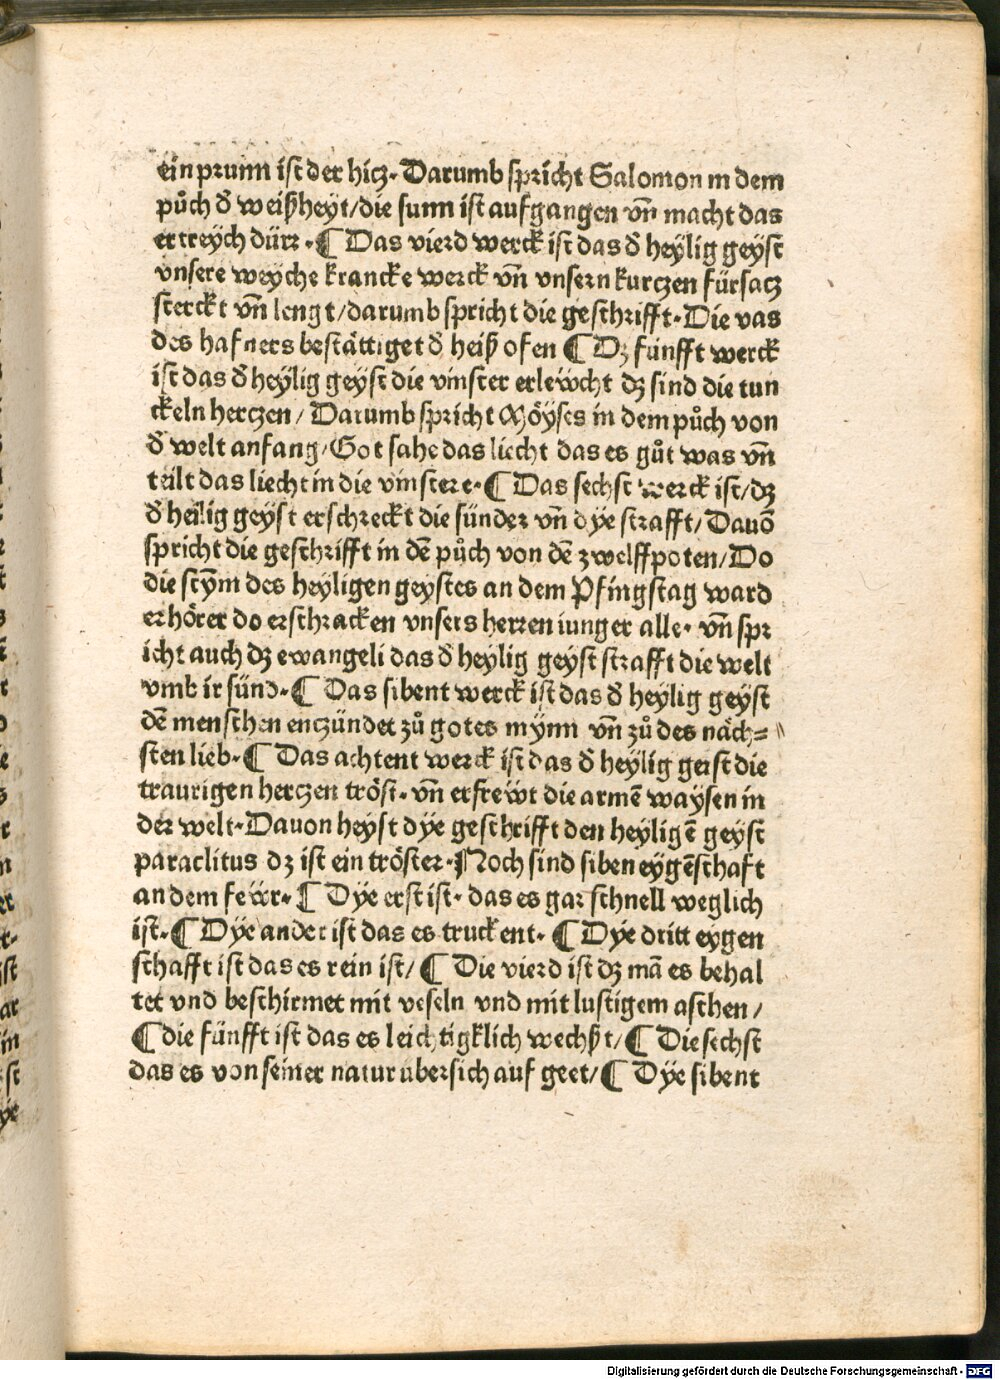 ein prunn ist der hicz. Darumb spricht Salomon in dem
půch đ weißheyt/die sunn ist aufgangen vñ macht das
ertreych dürr. ¶ Das vierd werck ist das đ heylig geyst
vnsere weyche krancke werck vñ vnsern kurczen fürsacz
sterckt vñ lengt/darumb spricht die geschrifft. Die vas
des hafners bestättiget đ heiß ofen ¶ Dz fünfft werck
ist das đ heylig geyst die vinster erlewcht dz sind die tun
ckeln herczen/ Darumb spricht Moyses in dem půch von
đ welt anfang/Got sahe das liecht das es gůt was vñ
teilt das liecht in die vinstere. ¶ Das sechst werck ist/dz
đ heilig geyst erschreckt die sünder vñ dye strafft/Dauō
spricht die geschrifft in dē půch von dē zwelffpoten/Do
die stym des heyligen geystes an dem Pfingstag ward
erhörer do erschracken vnsers herren iunger alle. vñ spr
icht auch dz ewangeli das đ heylig geyst strafft die welt
vmb ir sünd. ¶ Das sibent werck ist das đ heylig geyst
dē menschen enczündet zů gotes mynn vñ zů des näch=
sten lieb. ¶ Das achtent werck ist das đ heylig geist die
traurigen herczen tröst. vñ erfrewt die armē waysen in
der welt. Dauon heyst dye geschrifft den heyligē geyst
paraclitus dz ist ein tröster. Noch sind siben eygēschaft
an dem fewr. ¶ Dye erst ist. das es gar schnell weglich
ist. ¶ Dye ander ist das es truckent. ¶ Dye dritt eygen
schafft ist das es rein ist/ ¶ Die vierd ist dz mā es behal
tet vnd beschirmet mit veseln vnd mit lustigem aschen/
¶ die fünfft ist das es leichtigklich wechßt/ ¶ Die sechst
das es von seiner natur übersich auf geet/ ¶ Dye sibent
Digitalisierung gefördert durch die Deutsche Forschungsgemeinschaft - DFG